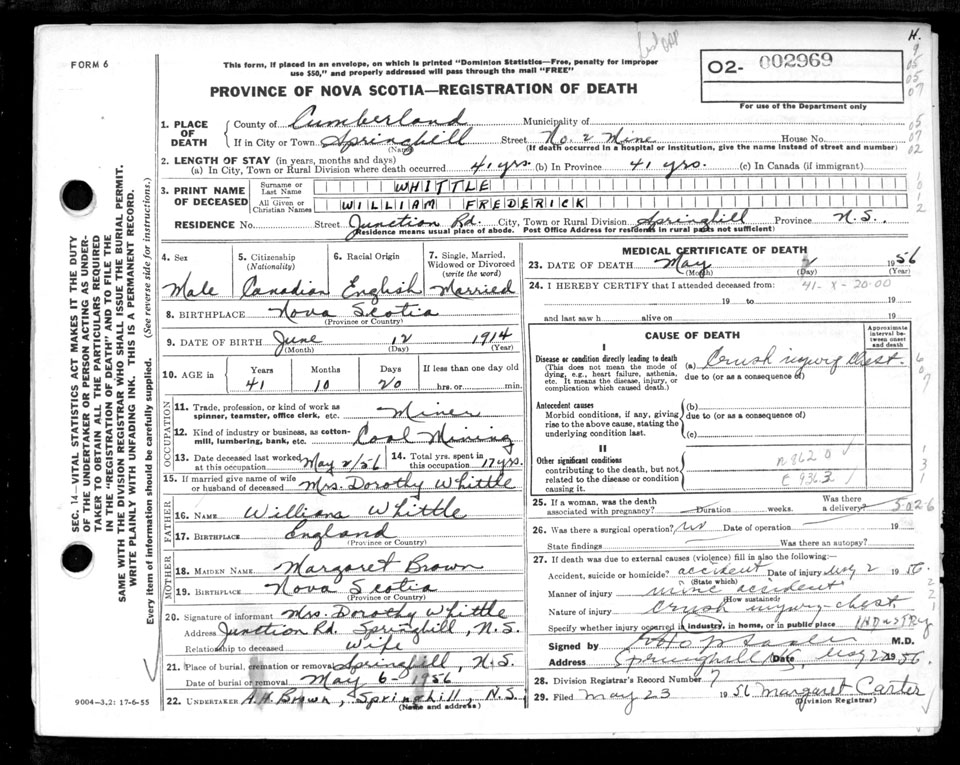 H.
9
05
05
07
FORM 6
This form, if placed in an envelope, on which is printed "Dominion Statistics—Free, penalty for improper
use $50," and properly addressed will pass through the mail "FREE"
O2- 002969
For use of the Department only
PROVINCE OF NOVA SCOTIA—REGISTRATION OF DEATH
1. PLACE OF DEATH County of Cumberland Municipality of
If in City or Town Springhill Street No. 2 Mine House No.
(Name) (If death occurred in a hospital or institution, give the name instead of street and number)
05
07
02
2. LENGTH OF STAY (in years, months and days)
(a) In City, Town or Rural Division where death occurred 41 yrs. (b) In Province 41 yrs. (c) In Canada (if immigrant)
3. PRINT NAME OF DECEASED Surname or Last Name WHITTLE
All Given or Christian Names WILLIAM FREDERICK
1
0
1
2
RESIDENCE No. Street Junction Rd. City, Town or Rural Division Springhill Province N.S.
(Residence means usual place of abode. Post Office Address for residents in rural parts not sufficient)
4. Sex Male
5. Citizenship (Nationality) Canadian
6. Racial Origin English
7. Single, Married, Widowed or Divorced (write the word) Married
8. BIRTHPLACE Nova Scotia
(Province or Country)
9. DATE OF BIRTH June 12 1914
(Month) (Day) (Year)
10. AGE in Years Months Days If less than one day old
41 10 20 hrs. or min.
OCCUPATION
11. Trade, profession, or kind of work as spinner, teamster, office clerk, etc. Miner
12. Kind of industry or business, as cotton-mill, lumbering, bank, etc. Coal Mining
13. Date deceased last worked at this occupation May 2/56 14. Total yrs. spent in this occupation 17 yrs.
15. If married give name of wife or husband of deceased Mrs. Dorothy Whittle
FATHER
16. NAME William Whittle
17. BIRTHPLACE England
(Province or Country)
MOTHER
18. MAIDEN NAME Margaret Brown
19. BIRTHPLACE Nova Scotia
(Province or Country)
20. Signature of informant Mrs. Dorothy Whittle
Address Junction Rd. Springhill, N.S.
Relationship to deceased Wife
21. Place of burial, cremation or removal Springhill, N.S.
Date of burial or removal May 6 1956
22. UNDERTAKER A.H. Brown, Springhill, N.S.
(Name and address)
9004—3.2: 17-6-55
MEDICAL CERTIFICATE OF DEATH
23. DATE OF DEATH May 2 1956
(Month) (Day) (Year)
24. I HEREBY CERTIFY that I attended deceased from:
41-X-20-00
19 to 19
and last saw h alive on 19
CAUSE OF DEATH
Approximate interval between onset and death
I
Disease or condition directly leading to death
(This does not mean the mode of dying, e.g., heart failure, asthenia, etc. It means the disease, injury, or complication which caused death.)
(a) Crush injury chest.
due to (or as a consequence of)
Antecedent causes
Morbid conditions, if any, giving rise to the above cause, stating the underlying condition last.
(b)
due to (or as a consequence of)
(c)
II
Other significant conditions
contributing to the death, but not related to the disease or condition causing it.
N 862 0
E 936.3
6
0
7
1
3
1
25. If a woman, was the death associated with pregnancy? Duration weeks. Was there a delivery?
5026
26. Was there a surgical operation? Date of operation
State findings Was there an autopsy?
27. If death was due to external causes (violence) fill in also the following:—
Accident, suicide or homicide? accident Date of injury May 2 1956.
(State which)
Manner of injury mine accident
(How sustained)
Nature of injury crush injury chest
Specify whether injury occurred in industry, in home, or in public place INDUSTRY
Signed by M.D.
Address Springhill NS Date May 2 1956.
28. Division Registrar's Record Number 7
29. Filed May 23 1956 Margaret Carter
(Division Registrar)
SEC. 14—VITAL STATISTICS ACT MAKES IT THE DUTY
OF THE UNDERTAKER OR PERSON ACTING AS UNDER-
TAKER TO OBTAIN ALL THE PARTICULARS REQUIRED
IN THE "REGISTRATION OF DEATH" AND TO FILE THE
SAME WITH THE DIVISION REGISTRAR WHO SHALL ISSUE THE BURIAL PERMIT.
WRITE PLAINLY WITH UNFADING INK. THIS IS A PERMANENT RECORD.
Every item of information should be carefully supplied. (See reverse side for instructions.)